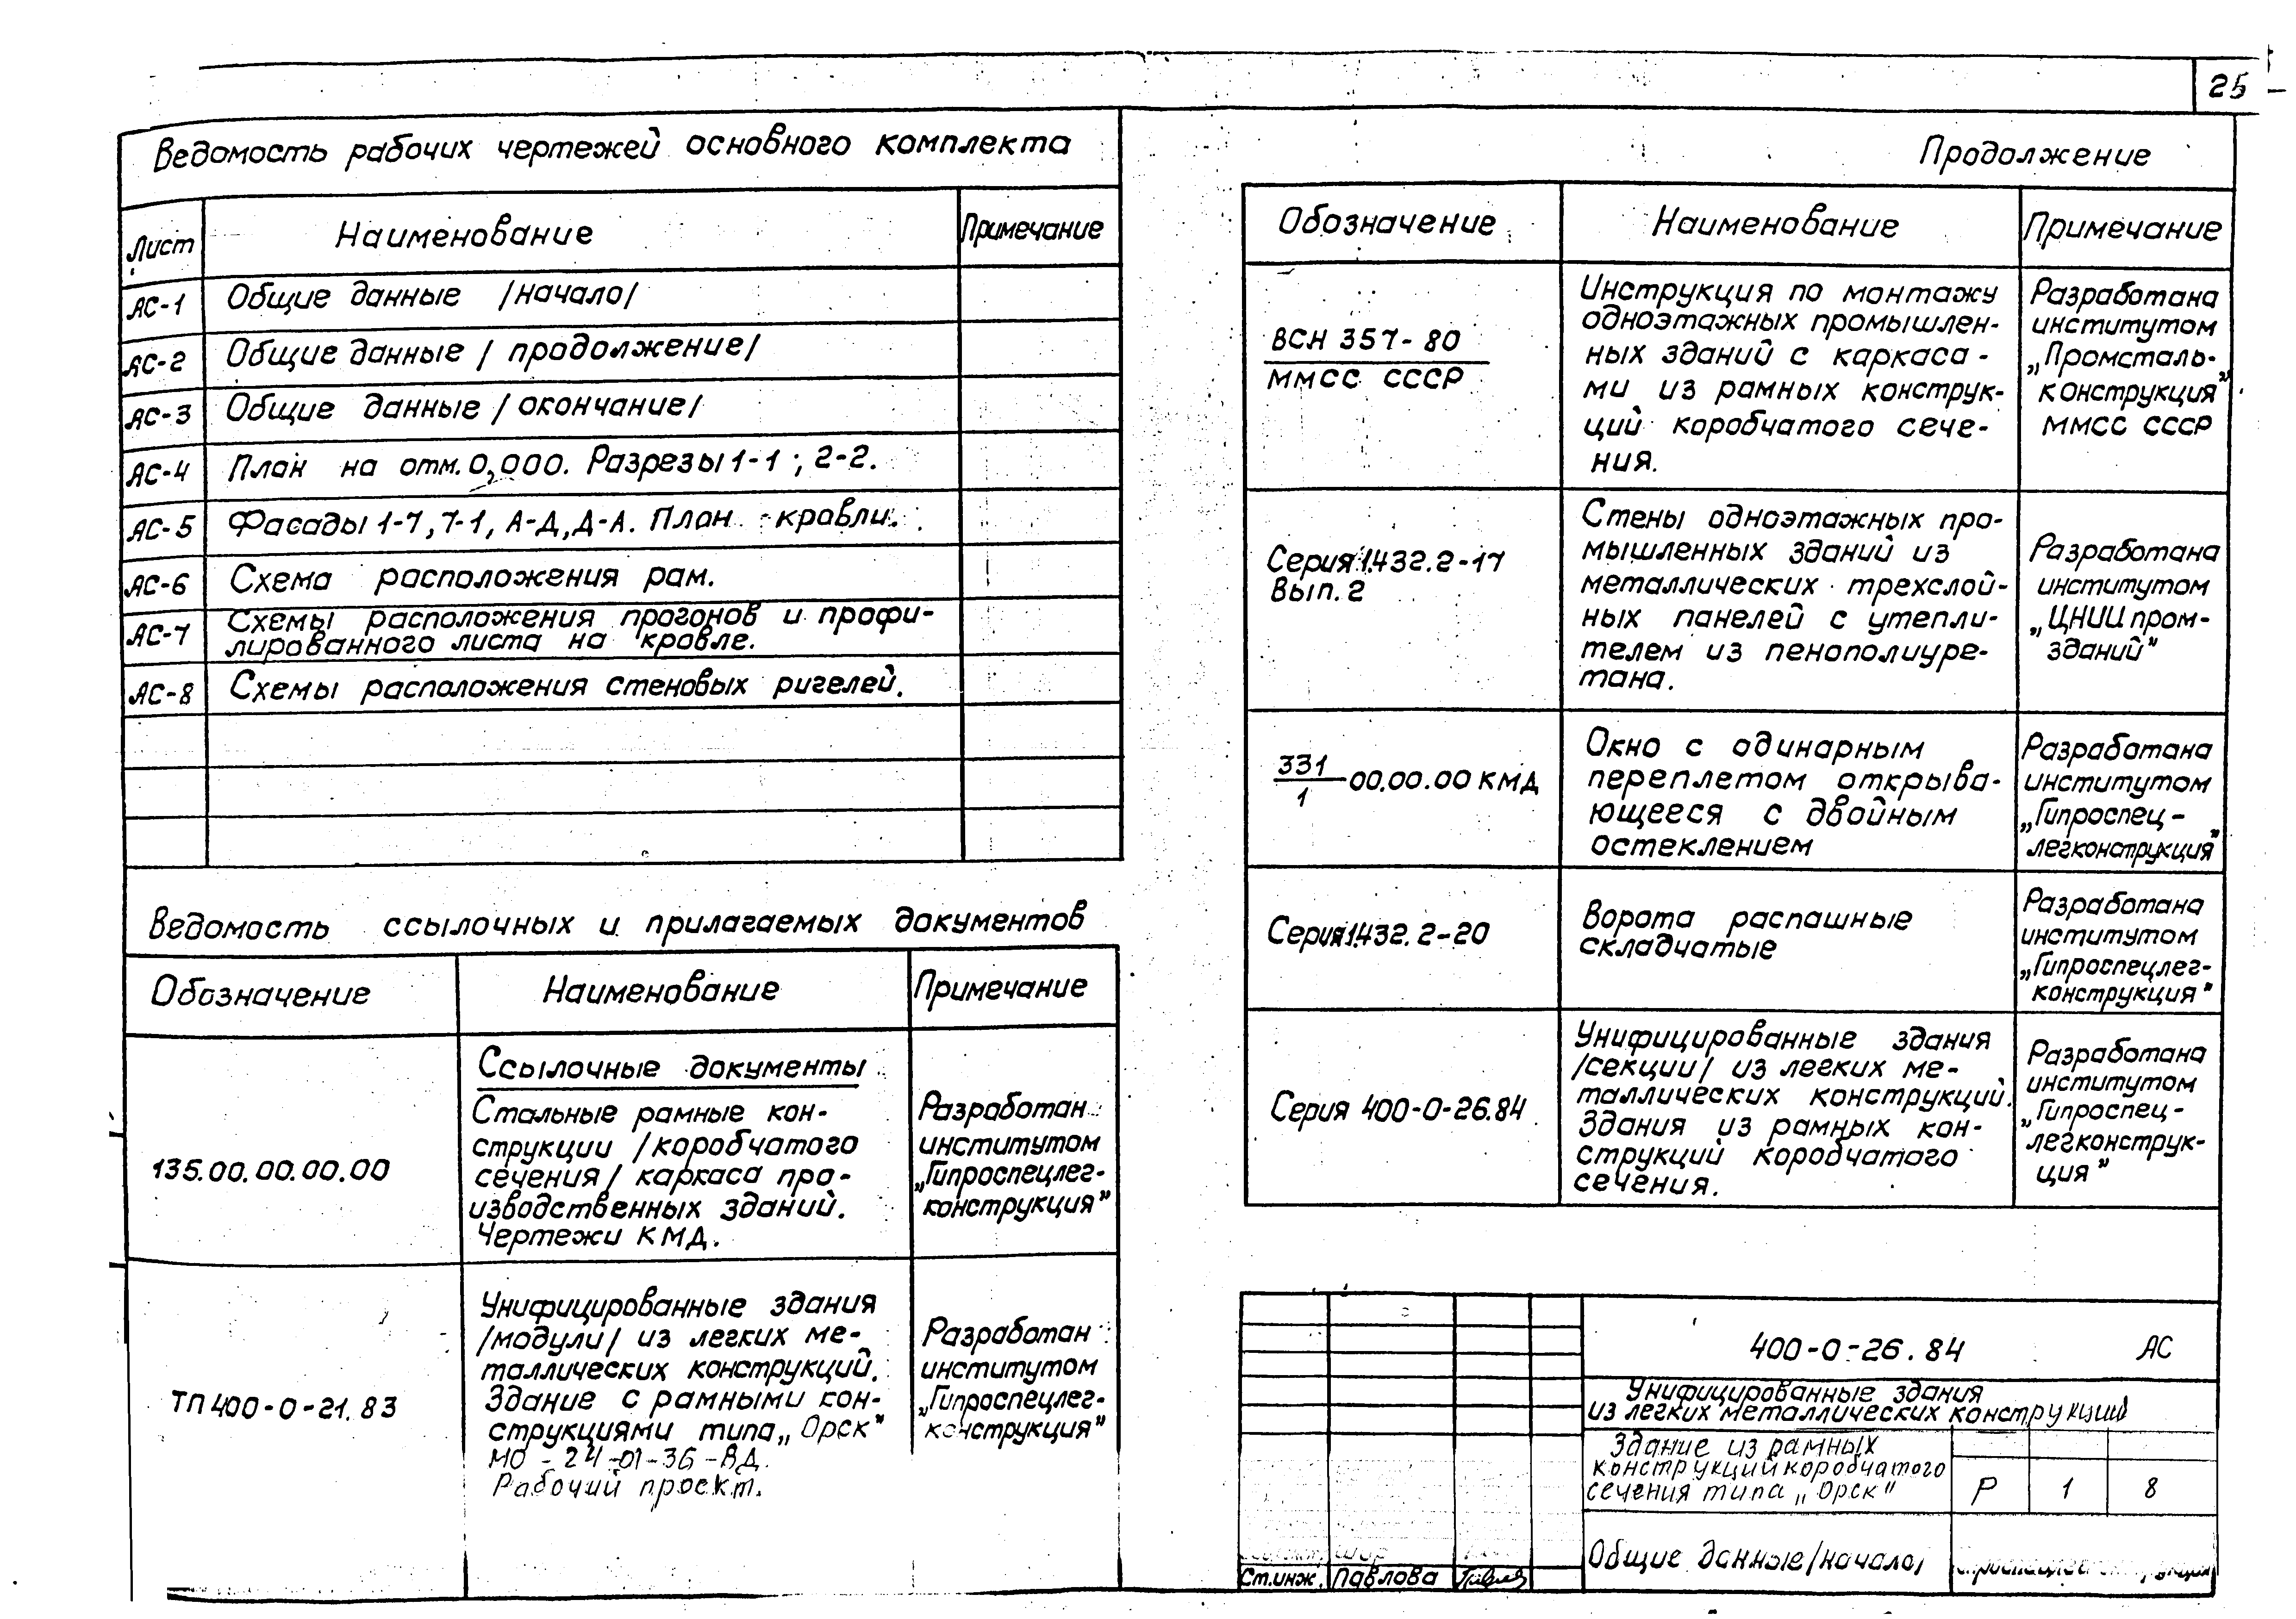 25
Ведомость рабочих чертежей основного комплекта
Лист Наименование Примечание
АС-1 Общие данные /начало/
АС-2 Общие данные / продолжение/
АС-3 Общие данные / окончание/
АС-4 План на отм. 0,000. Разрезы 1-1 ; 2-2.
АС-5 Фасады 1-7, 7-1, А-Д, Д-А. План кровли.
АС-6 Схема расположения рам.
АС-7 Схемы расположения прогонов и профи-
лированного листа на кровле.
АС-8 Схемы расположения стеновых ригелей.
Ведомость ссылочных и прилагаемых документов
Обозначение Наименование Примечание
Ссылочные документы
135.00.00.00.00
Стальные рамные кон-
струкции /коробчатого
сечения/ каркаса про-
изводственных зданий.
Чертежи КМД.
Разработан
институтом
„Гипроспецлег-
конструкция"
ТП 400-0-21.83
Унифицированные здания
/модули/ из легких ме-
таллических конструкций.
Здание с рамными кон-
струкциями типа „Орск"
МО-24-01-36-ВД.
Рабочий проект.
Разработан
институтом
„Гипроспецлег-
конструкция"
Продолжение
Обозначение Наименование Примечание
ВСН 357-80
ММСС СССР
Инструкция по монтажу
одноэтажных промышлен-
ных зданий с каркаса-
ми из рамных конструк-
ций коробчатого сече-
ния.
Разработана
институтом
„Промсталь-
конструкция"
ММСС СССР
Серия 1.432.2-17
Вып. 2
Стены одноэтажных про-
мышленных зданий из
металлических трехслой-
ных панелей с утепли-
телем из пенополиуре-
тана.
Разработана
институтом
„ЦНИИпром-
зданий"
331
1
00.00.00 КМД
Окно с одинарным
переплетом открыва-
ющееся с двойным
остеклением
Разработана
институтом
„Гипроспец-
легконструкция"
Серия 1.432.2-20
Ворота распашные
складчатые
Разработана
институтом
„Гипроспецлег-
конструкция"
Серия 400-0-26.84
Унифицированные здания
/секции/ из легких ме-
таллических конструкций.
Здания из рамных кон-
струкций коробчатого
сечения.
Разработана
институтом
„Гипроспец-
легконструк-
ция"
400-0-26.84 АС
Унифицированные здания
из легких металлических конструкций
Здание из рамных
конструкций коробчатого
сечения типа „Орск"
Р 1 8
Общие данные /начало/
Ст.инж. Павлова